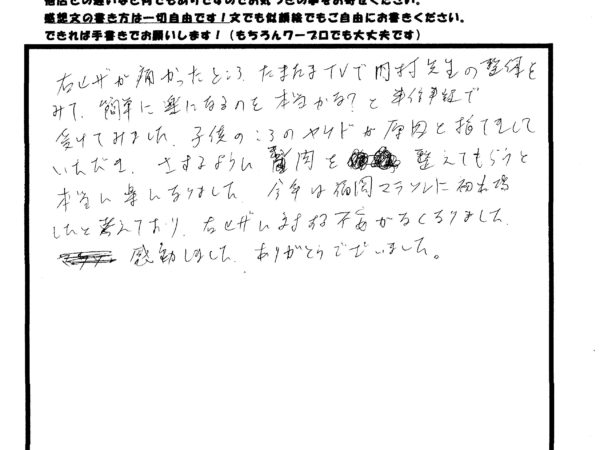 他店との違いなど何でもありですのでお気づきの事をお寄せください。
感想文の書き方は一切自由です！文でも似顔絵でもご自由にお書きください。
できれば手書きでお願いします！（もちろんワープロでも大丈夫です）
右ヒザが痛かったところ、たまたまTVで内村先生の整体を
みて、簡単に楽になるのを本当かな？と半信半疑で
受けてみました。子供のころのケガが原因と指てきして
いただき、さするように筋肉を 整えてもらうと
本当に楽になりました。今年は福岡マラソンに初出場
したと考えており、右ヒザに対する不安がなくなりました。
感動しました。ありがとうございました。